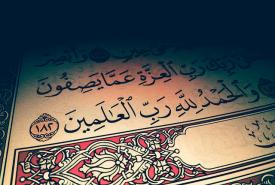 رَبِّ الْعِزَّةِ عَمَّا يَصِفُونَ
وَالْحَمْدُ لِلَّهِ رَبِّ الْعَالَمِينَ ١٨٢